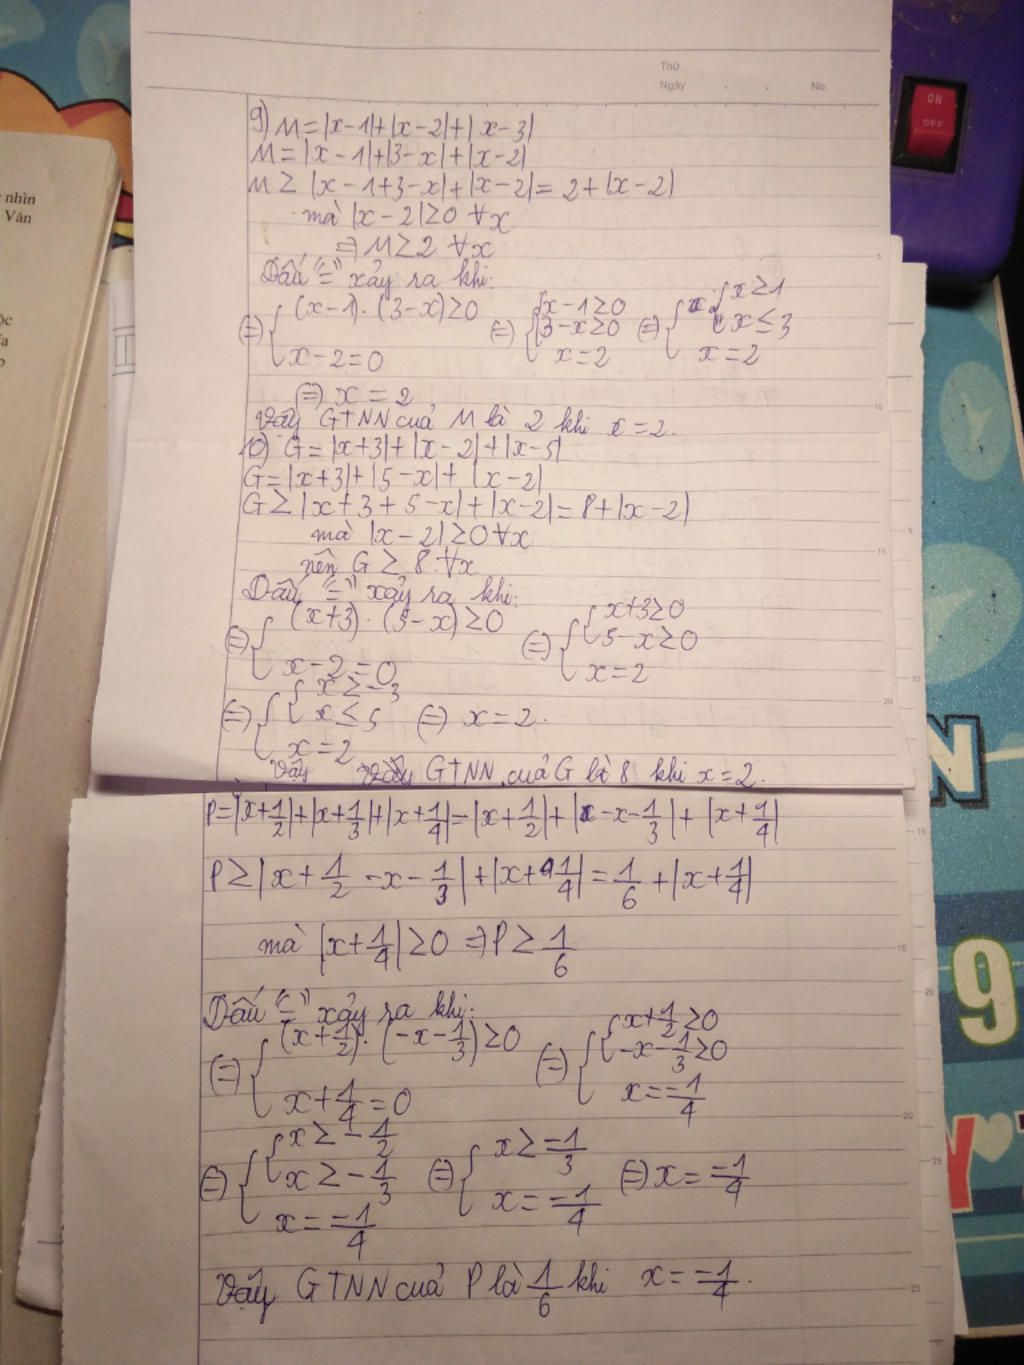 Thứ
Ngày . . No.
nhìn
Vân
ộc
ON
OFF
9) M=|x-1|+|x-2|+|x-3|
M=|x-1|+|3-x|+|x-2|
M≥ |x-1+3-x|+|x-2|= 2+|x-2|
mà |x-2|≥0 ∀x
⇒ M≥2 ∀x
Dấu "=" xảy ra khi:
(=) { (x-1).(3-x)≥0 (=) { { x-1≥0 (=) { { x≥1
3-x≥0 x≤3
x-2=0 x=2 x=2
(=) x = 2
Vậy GTNN cuả M là 2 khi x=2.
10) G=|x+3|+|x-2|+|x-5|
G=|x+3|+|5-x|+ |x-2|
G≥ |x+3+5-x|+|x-2|= 8+|x-2|
mà |x-2|≥0 ∀x
nên G ≥ 8 ∀x
Dấu "=" xảy ra khi:
(=) { (x+3).(5-x)≥0 (=) { { x+3≥0
5-x≥0
x-2=0 x=2
(=) { { x≥-3
x≤5 (=) x=2.
x=2
Vậy Vậy GTNN cuả G là 8 khi x=2.
P=|x+1/2|+|x+1/3|+|x+1/4|=|x+1/2|+|-x-1/3|+|x+1/4|
P≥|x+1/2-x-1/3|+|x+1/4|=1/6+|x+1/4|
mà |x+1/4|≥0 ⇒ P≥1/6
Dấu "=" xảy ra khi:
(=) { (x+1/2).(-x-1/3)≥0 (=) { { x+1/2≥0
-x-1/3≥0
x+1/4=0 x=-1/4
(=) { { x≥-1/2 (=) { x≥-1/3 (=) x=-1/4
x≥-1/3
x=-1/4 x=-1/4
Vậy GTNN cuả P là 1/6 khi x=-1/4.
N
9
Y